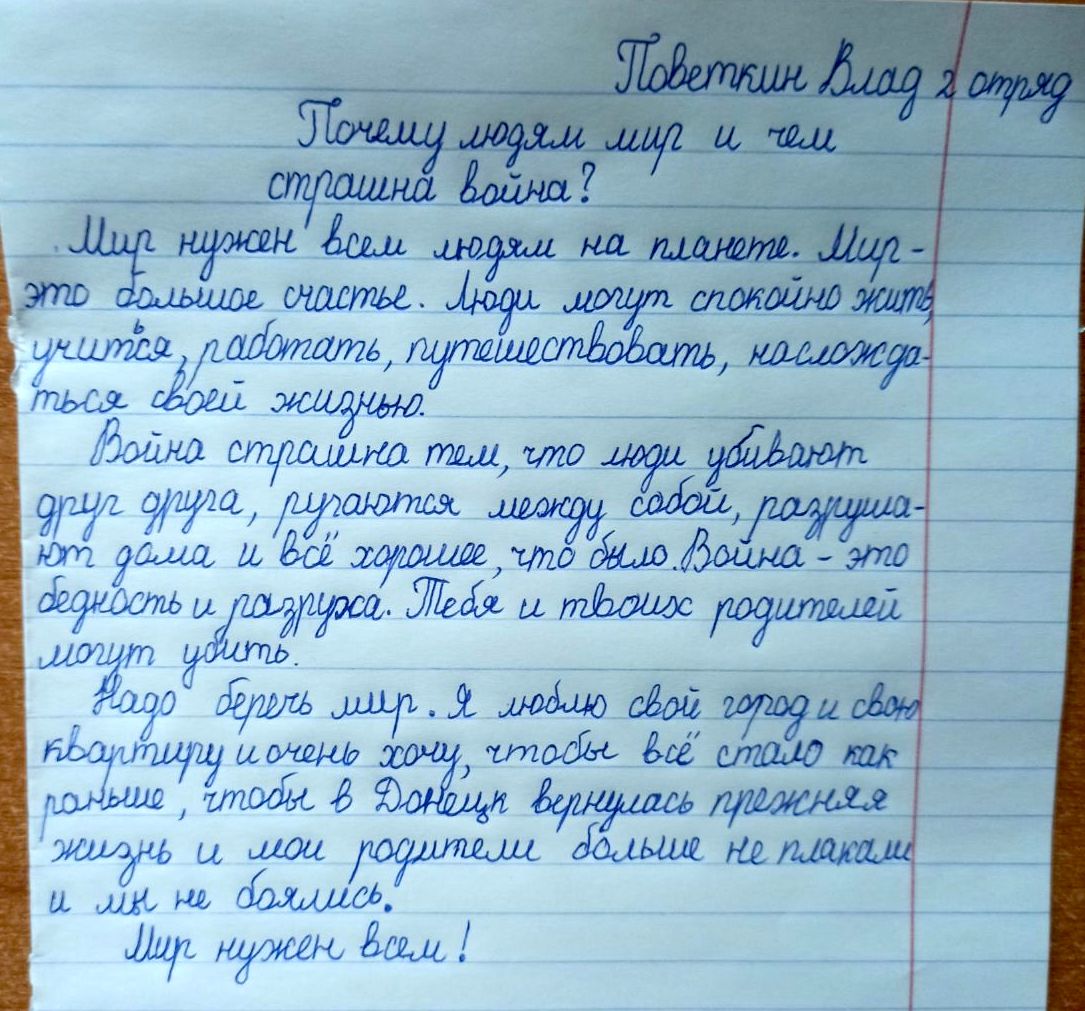 Поветкин Влад 2 отряд
Почему людям мир и чем
страшна война?
Мир нужен всем людям на планете. Мир -
это большое счастье. Люди могут спокойно жить,
учиться, работать, путешествовать, насложда-
ться своей жизнью.
Война страшна тем, что люди убивают
друг друга, ругаются между собой, разруша-
ют дома и всё хорошее, что было. Война - это
бедность и разруха. Тебя и твоих родителей
могут убить.
Надо беречь мир. Я люблю свой город и свою
квартиру и очень хочу, чтобы всё стало как
раньше, чтобы в Донецк вернулась прежняя
жизнь и мои родители больше не плакали
и мы не боялись.
Мир нужен всем!